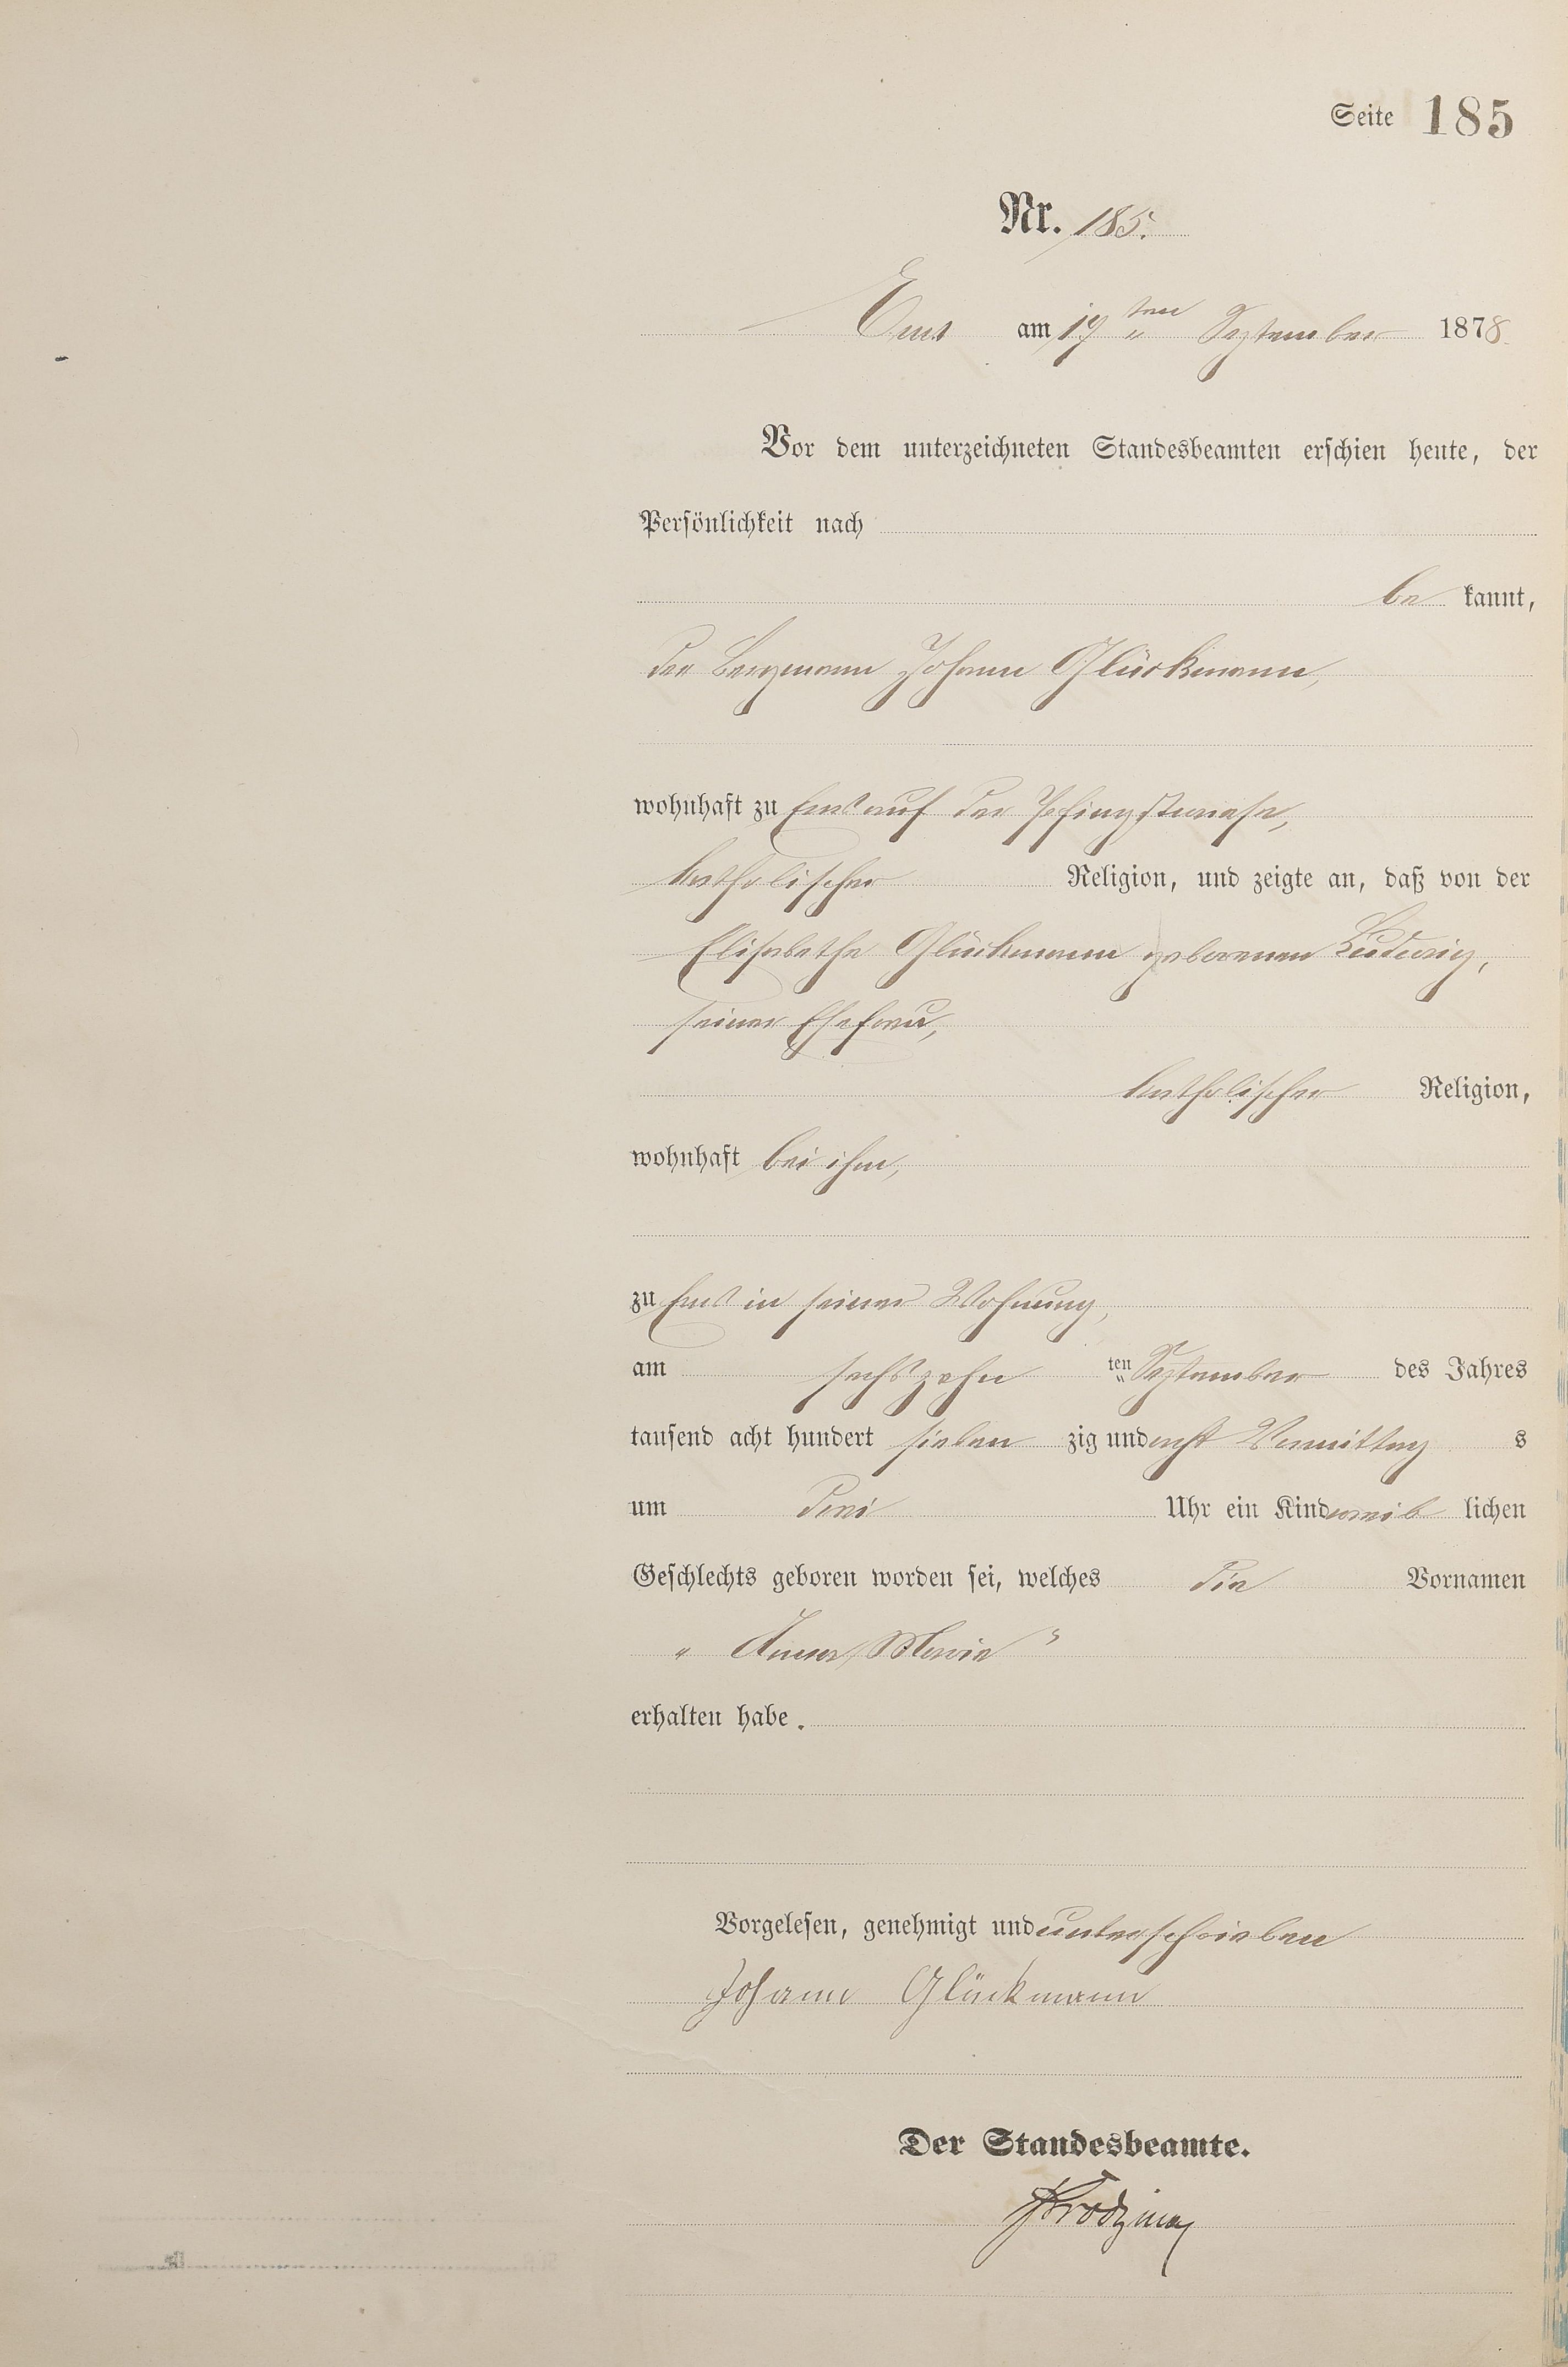 Seite 185
Nr. 185.
Ems am 19ten September 1878
Vor dem unterzeichneten Standesbeamten erschien heute, der
Persönlichkeit nach
be kannt,
der Bergmann Johann Glückmann,
wohnhaft zu Ems auf der Pfingstwiese,
katholischer Religion, und zeigte an, daß von der
Elisabethe Glückmann geborenen Ludwig,
seiner Ehefrau,
katholischer Religion,
wohnhaft bei ihm,
zu Ems in seiner Wohnung,
am sechszehn ten September des Jahres
tausend acht hundert sieben zig und acht Vormittag s
um drei Uhr ein Kind weib lichen
Geschlechts geboren worden sei, welches die Vornamen
„ Anna, Marie "
erhalten habe.
Vorgelesen, genehmigt und unterschrieben
Johann Glückmann
Der Standesbeamte.